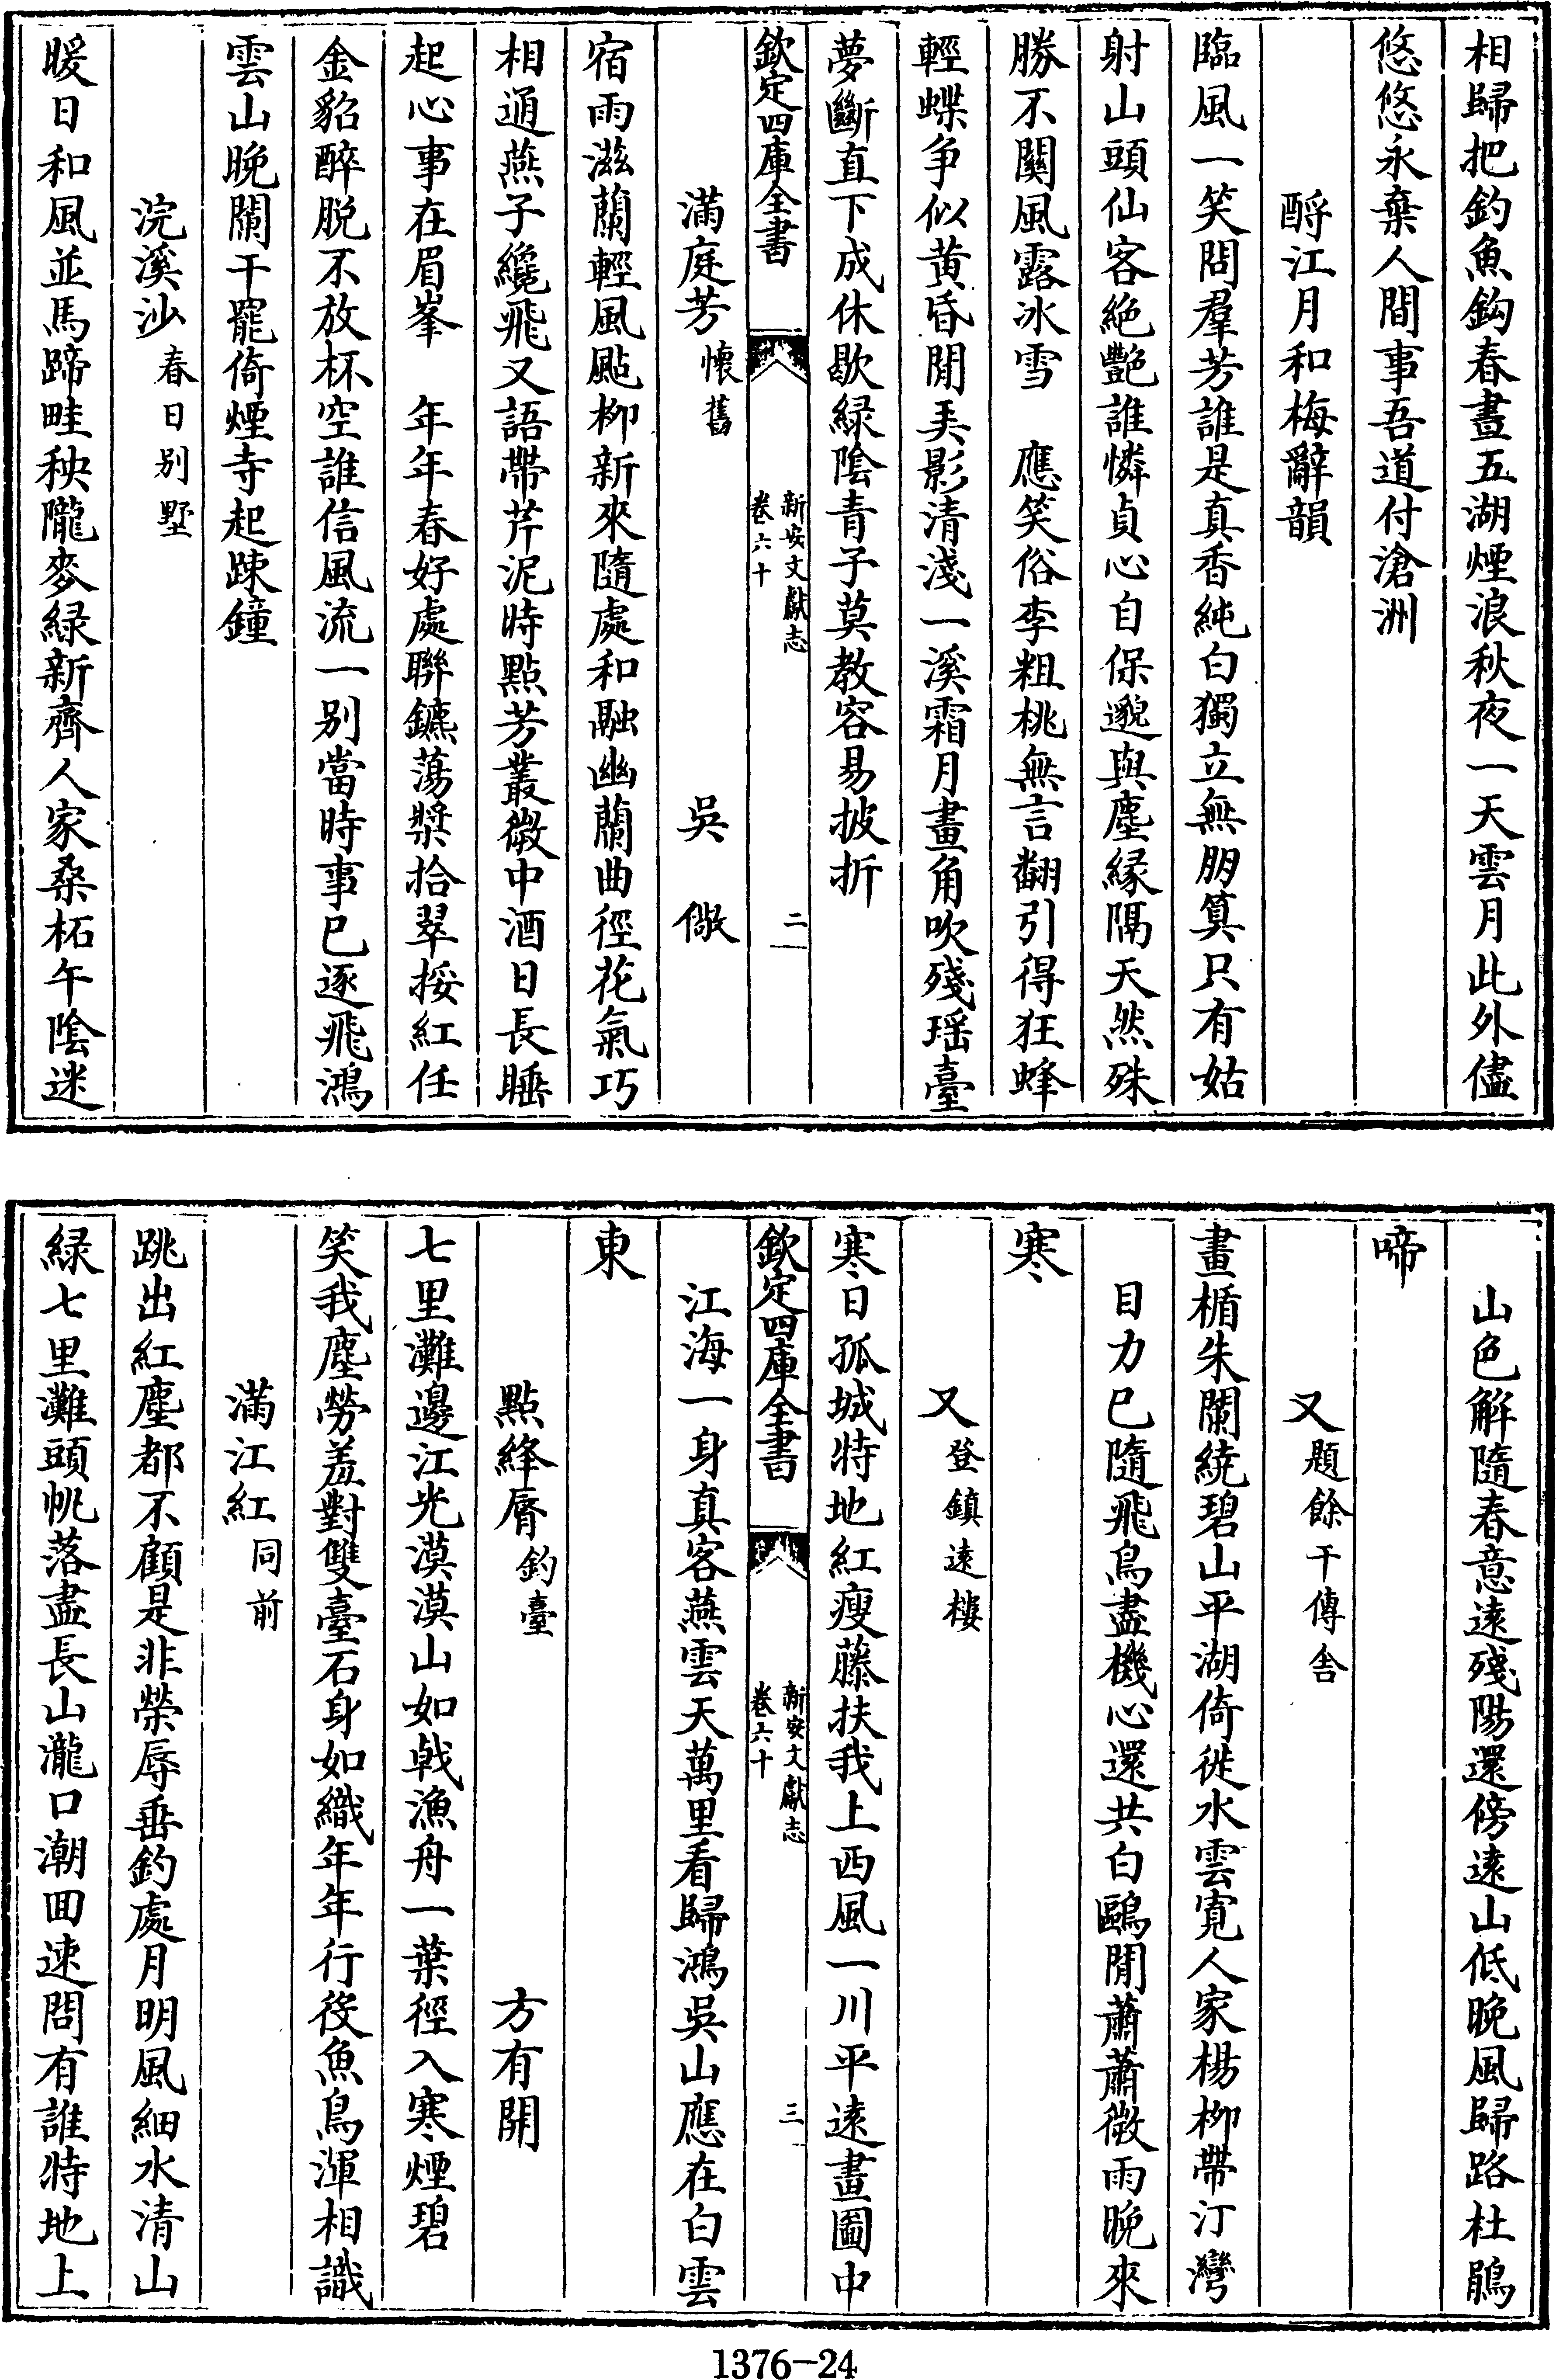 相歸把釣魚鈎春晝五湖煙浪秋夜一天雲月此外儘
悠悠永棄人間事吾道付滄洲
酹江月和梅辭韻
臨風一笑問羣芳誰是真香純白獨立無朋算只有姑
射山頭仙客絶艷誰憐貞心自保邈與塵緣隔天然殊
勝不關風露冰雪　應笑俗李粗桃無言翻引得狂蜂
輕蝶争似黄昏閒弄影清淺一溪霜月畫角吹殘瑶臺
夢斷直下成休歇緑陰青子莫教容易披折
欽定四庫全書　新安文獻志卷六十　二
滿庭芳懷舊　吳儆
宿雨滋蘭輕風颭柳新來隨處和融幽蘭曲徑花氣巧
相通燕子纔飛又語帶芹泥時點芳叢微中酒日長睡
起心事在眉峯　年年春好處聯鑣蕩槳拾翠挼紅任
金貂醉脱不放杯空誰信風流一别當時事已逐飛鴻
雲山晚闌干罷倚煙寺起踈鐘
浣溪沙春日别墅
暖日和風並馬蹄畦秧隴麥緑新齊人家桑柘午陰迷
山色解隨春意遠殘陽還傍遠山低晚風歸路杜鵑
啼
又題餘干傳舍
畫楯朱闌繞碧山平湖倚徙水雲寛人家楊柳帶汀灣
目力已隨飛鳥盡機心還共白鷗閒蕭蕭微雨晚來
寒
又登鎮遠樓
寒日孤城特地紅瘦藤扶我上西風一川平遠畫圖中
欽定四庫全書　新安文獻志卷六十　三
江海一身真客燕雲天萬里看歸鴻吳山應在白雲
東
點絳脣釣臺　方有開
七里灘邊江光漠漠山如戟漁舟一葉徑入寒煙碧
笑我塵勞羞對雙臺石身如織年年行役魚鳥渾相識
滿江紅同前
跳出紅塵都不顧是非榮辱垂釣處月明風細水清山
緑七里灘頭帆落盡長山瀧口潮囬速問有誰特地上
1376-24